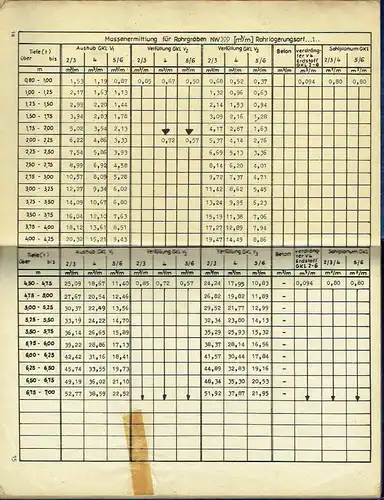 Massenermittlung für Rohrgräben NW300 [m³/m] Rohrlagerungsart..1..
Tiefe (t) Aushub GKL V₁ Verfüllung GKL V₂ Verfüllung GKL V₃ Beton verdräng- Sohlplanum GKL
über bis 2/3 4 5/6 2/3 4 5/6 2/3 4 5/6 Erdstoff GKL 2-6 2/3/4 5/6
m m³/m m³/m m³/m m³/m m³/m m³/m m³/m m³/m m³/m m³/m m³/m m²/m m²/m
0,80 - 1,00 1,53 1,19 0,87 0,85 0,67 0,50 0,68 0,52 0,37 - 0,094 0,80 0,80
1,00 - 1,25 2,17 1,63 1,13 1,32 0,96 0,63
1,25 - 1,50 2,99 2,20 1,44 2,14 1,53 0,94
1,50 - 1,75 3,94 2,83 1,78 3,09 2,16 1,28
1,75 - 2,00 5,02 3,54 2,13 4,17 2,87 1,63
2,00 - 2,25 6,22 4,86 3,33 0,72 0,57 5,37 4,14 2,76
2,25 - 2,50 7,54 5,86 3,93 6,69 5,13 3,36
2,50 - 2,75 8,99 6,92 4,58 8,14 6,20 4,01
2,75 - 3,00 10,57 8,09 5,28 9,72 7,37 4,71
3,00 - 3,25 12,27 9,34 6,02 11,42 8,62 5,45
3,25 - 3,50 14,09 10,67 6,80 13,24 9,95 6,23
3,50 - 3,75 16,04 12,10 7,63 15,19 11,38 7,06
3,75 - 4,00 18,12 13,61 8,51 17,27 12,89 7,94
4,00 - 4,25 20,32 15,21 9,43 19,47 14,49 8,86
Tiefe (t) Aushub GKL V₁ Verfüllung GKL V₂ Verfüllung GKL V₃ Beton verdräng- Sohlplanum GKL
über bis 2/3 4 5/6 2/3 4 5/6 2/3 4 5/6 Erdstoff GKL 2-6 2/3/4 5/6
m m³/m m³/m m³/m m³/m m³/m m³/m m³/m m³/m m³/m m³/m m³/m m²/m m²/m
4,50 - 4,75 25,09 18,67 11,40 0,85 0,72 0,57 24,24 17,95 10,83 - 0,094 0,80 0,80
4,75 - 5,00 27,67 20,54 12,46 26,82 19,82 11,89 -
5,00 - 5,25 30,37 22,49 13,56 29,52 21,77 12,99 -
5,25 - 5,50 33,19 24,22 14,70 32,34 23,80 14,13 -
5,50 - 5,75 36,14 26,65 15,89 35,29 25,93 15,32 -
5,75 - 6,00 39,22 28,86 17,13 38,37 28,14 16,56 -
6,00 - 6,25 42,42 31,16 18,41 41,57 30,44 17,84 -
6,25 - 6,50 45,74 33,55 19,73 44,89 32,83 19,16 -
6,50 - 6,75 49,19 36,02 21,10 48,34 35,30 20,53 -
6,75 - 7,00 52,77 38,59 22,52 51,92 37,87 21,95 -